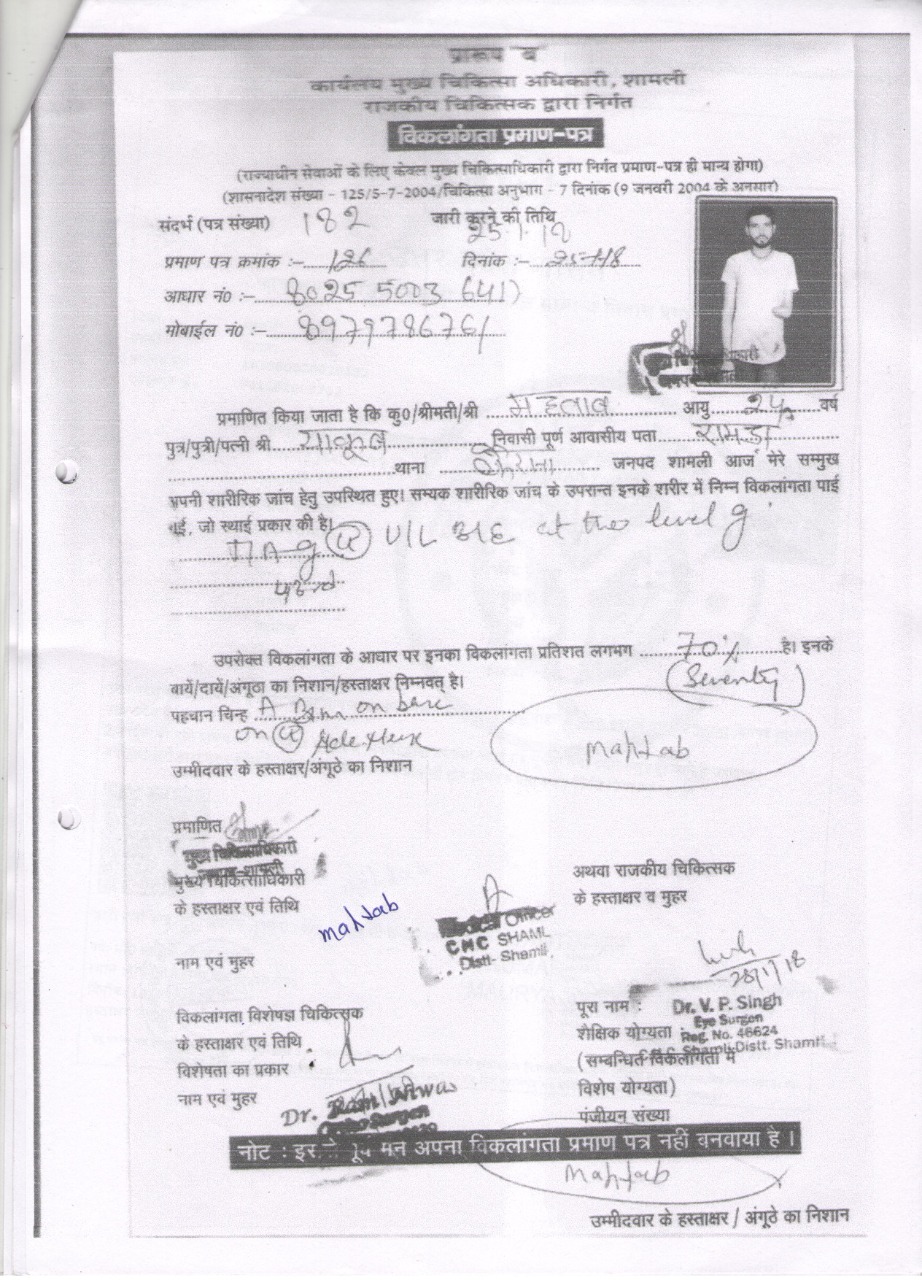 प्रारूप ब
कार्यलय मुख्य चिकित्सा अधिकारी, शामली
राजकीय चिकित्सक द्वारा निर्गत
विकलांगता प्रमाण-पत्र
(राज्याधीन सेवाओं के लिए केवल मुख्य चिकित्साधिकारी द्वारा निर्गत प्रमाण-पत्र ही मान्य होगा)
(शासनादेश संख्या - 125/5-7-2004/चिकित्सा अनुभाग - 7 दिनांक (9 जनवरी 2004 के अनसार)
संदर्भ (पत्र संख्या) 182 जारी करने की तिथि
25.1.18
प्रमाण पत्र क्रमांक :- 126 दिनांक :- 25-1-18
आधार नं० :- 8025 5003 6417
मोबाईल नं० :- 8979786761
प्रमाणित किया जाता है कि कु०/श्रीमती/श्री महताब आयु 24 वर्ष
पुत्र/पुत्री/पत्नी श्री याकूब निवासी पूर्ण आवासीय पता रामडा
थाना कैराना जनपद शामली आज मेरे सम्मुख
अपनी शारीरिक जांच हेतु उपस्थित हुए। सम्यक शारीरिक जांच के उपरान्त इनके शरीर में निम्न विकलांगता पाई
गई, जो स्थाई प्रकार की है।
U/L B/E at the level of
उपरोक्त विकलांगता के आधार पर इनका विकलांगता प्रतिशत लगभग 70% है। इनके
(Seventy)
बायें/दायें/अंगूठा का निशान/हस्ताक्षर निम्नवत् है।
पहचान चिन्ह A on
on
mahtab
उम्मीदवार के हस्ताक्षर/अंगूठे का निशान
प्रमाणित
मुख्य चिकित्साधिकारी
जनपद-शामली
मुख्य चिकित्साधिकारी
के हस्ताक्षर एवं तिथि
अथवा राजकीय चिकित्सक
के हस्ताक्षर व मुहर
mahtab
Medical Officer
CHC SHAML
Distt- Shamli
नाम एवं मुहर
25/1/18
पूरा नाम : Dr. V. P. Singh
Eye Surgon
शैक्षिक योग्यता Reg. No. 46624
Shamli Distt. Shamli
(सम्बन्धित विकलांगता में
विशेष योग्यता)
पंजीयन संख्या
विकलांगता विशेषज्ञ चिकित्सक
के हस्ताक्षर एवं तिथि
विशेषता का प्रकार
नाम एवं मुहर
Dr. Ram Niwas
Surgon
नोट : मन अपना विकलांगता प्रमाण पत्र नहीं बनवाया है।
mahtab
उम्मीदवार के हस्ताक्षर / अंगूठे का निशान